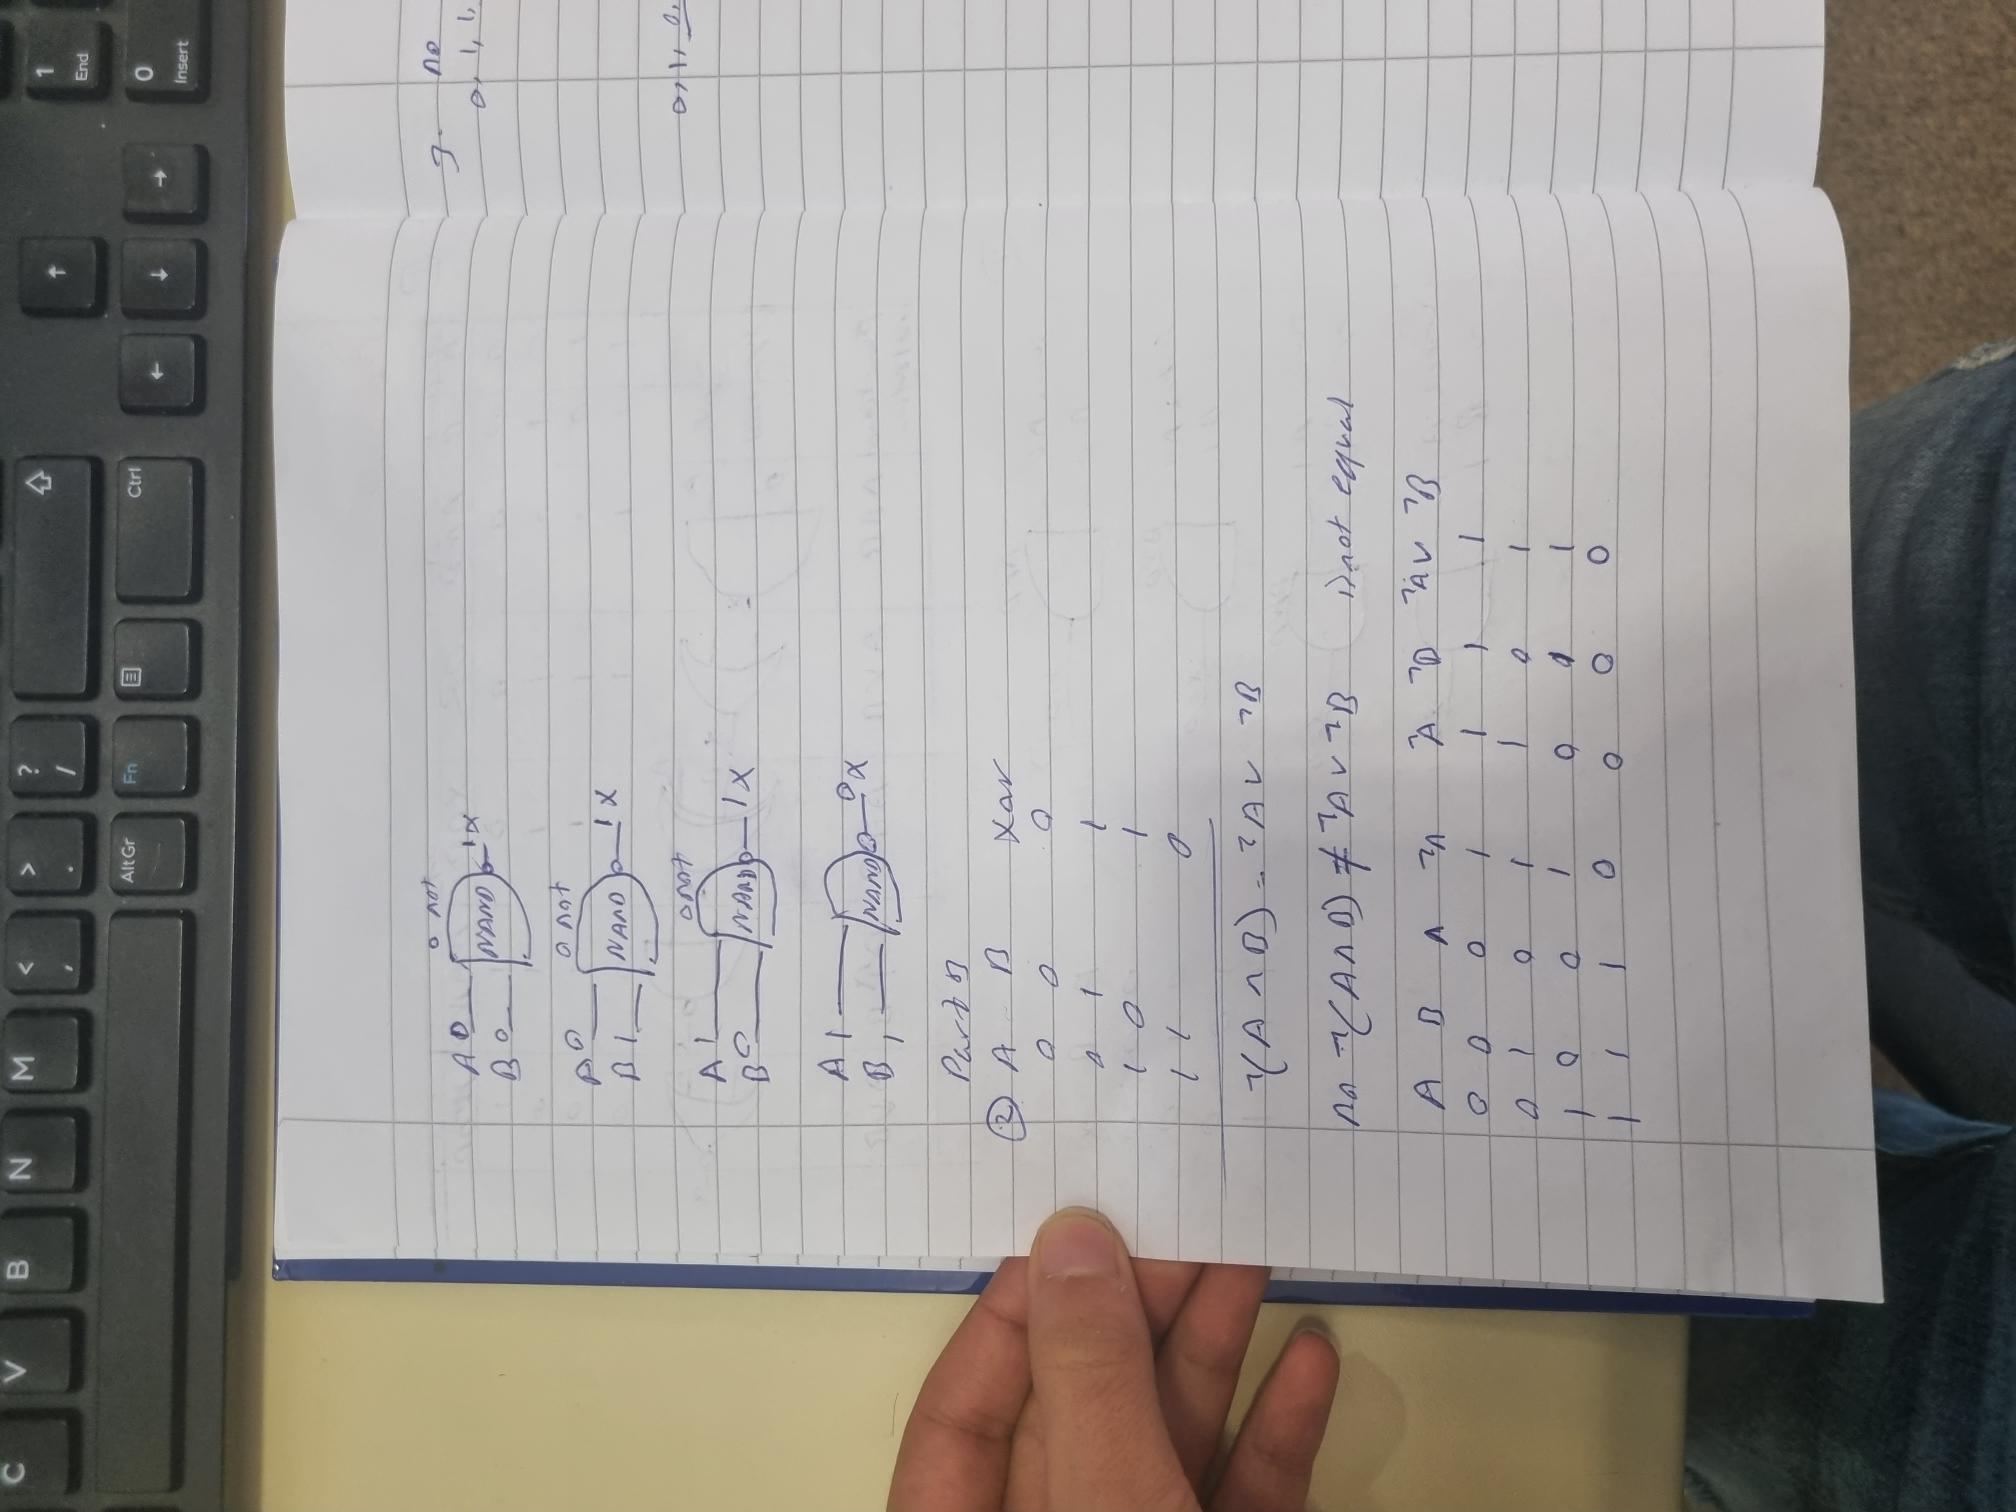 C V B N M < > ? 1
, . / End
AltGr Fn Ctrl 0
Insert
0 not
A 0 NAND 1 X
B 0
0 not
A 0 NAND 1 X
B 1
0 not
A 1 NAND 1 X
B 0
A 1 NAND 0 X
B 1
Part B
② A B Xor
0 0 0
0 1 1
1 0 1
1 1 0
¬(A ∧ B) = ¬A ∨ ¬B
no ¬(A∧B) ≠ ¬A ∨ ¬B not equal
A B ∧ ¬∧ ¬A ¬B ¬A ∨ ¬B
0 0 0 1 1 1 1
0 1 0 1 1 0 1
1 0 0 1 0 1 1
1 1 1 0 0 0 0
3. no
0, 1, 1,
0, 1, 0,